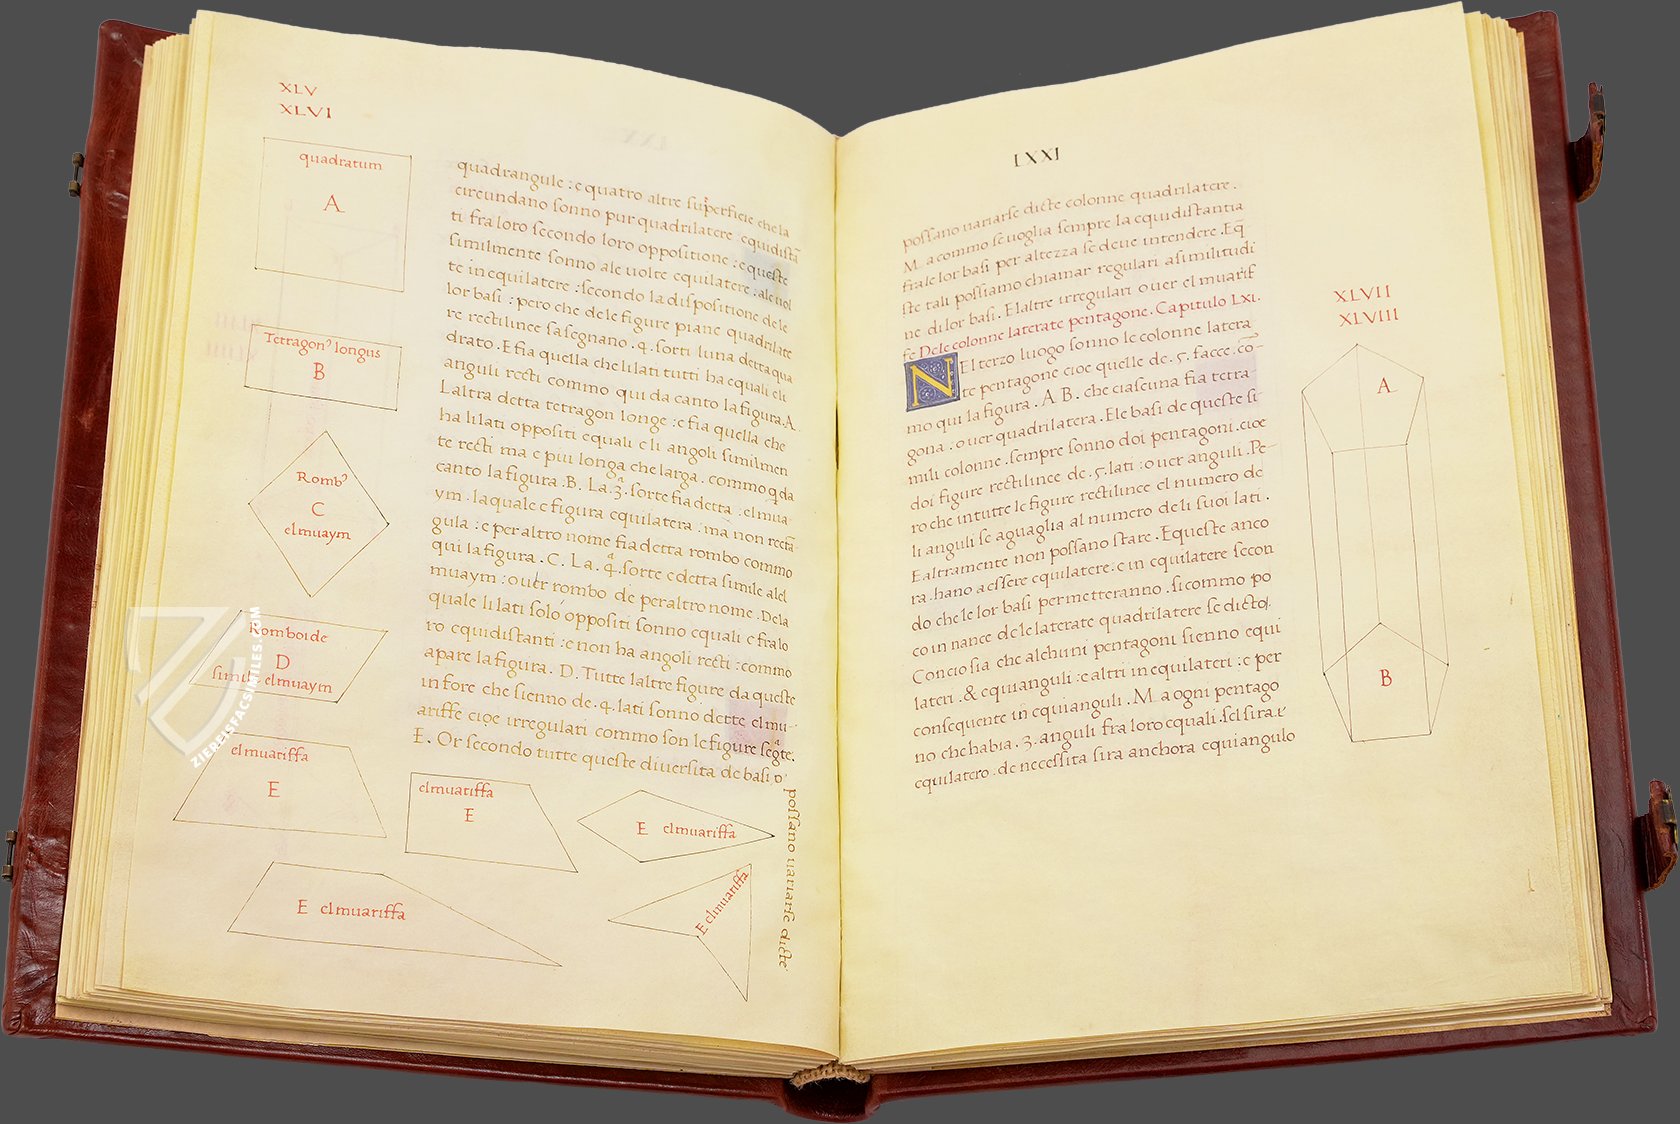 XLV
XLVI
quadratum
A
Tetragonꝰ longus
B
Rombꝰ
C
elmuaym
Romboide
D
simile elmuaym
elmuariffa
E
elmuariffa
E
E elmuariffa
E elmuariffa
E elmuariffa
quadrangule : e quatro altre superficie che la
circundano sonno pur quadrilatere equidistā
ti fra loro secondo loro oppositione : e queste
similmente sonno ale uolte equilatere : ale uol
te inequilatere : secondo la dispositione de le
lor basi : pero che de le figure piane quadrilate
re rectilinee sasegnano .4. sorti luna detta qua
drato. E fia quella che li lati tutti ha equali e li
anguli recti commo qui da canto la figura .A.
Laltra detta tetragon longo : e fia quella che
ha li lati oppositi equali e li angoli similmen
te recti ma e piu longa che larga . commo q̄ da
canto la figura .B. La .3ª. sorte fia detta : elmua
ym . laquale e figura equilatera : ma non rectā
gula : e per altro nome fia detta rombo commo
qui la figura . C. La .4ª. sorte e detta simile alel
muaym : ouer rombo de per altro nome . Dela
quale li lati solo oppositi sonno equali e fra lo
ro equidistanti : e non ha angoli recti : commo
apare la figura . D. Tutte laltre figure da queste
in fore che sienno de .4. lati sonno dette elmu-
ariffe cioe irregulari commo son le figure segte.
E. Or secondo tutte queste diuersita de basi
possano uariarse dicte
LXXI
possano uariarse dicte colonne quadrilatere .
Ma commo se uoglia sempre la equidistantia
fra le lor basi per altezza se deue intendere . E q̄
ste tali possiamo chiamar regulari a similitudi
ne di lor basi. E laltre irregulari ouer el muarif
fe Dele colonne laterate pentagone. Capitulo Lxi.
NEl terzo luogo sonno le colonne latera
te pentagone cioe quelle de .5. facce. cō-
mo qui la figura . A B . che ciascuna fia tetra
gona : ouer quadrilatera. E le basi de queste si
mili colonne .sempre sonno doi pentagoni .cioe
doi figure rectilinee de .5. lati : ouer anguli . Pe-
ro che in tutte le figure rectilinee el numero de
li anguli se aguaglia al numero de li suoi lati .
E altramente non possano stare . E queste anco
ra . hano a essere equilatere : e inequilatere secon
do che le lor basi permetteranno . sicommo po
co innance de le laterate quadrilatere se dicto.
Concio sia che alchuni pentagoni sienno equi
lateri . & equianguli : e altri inequilateri : e per
consequente inequianguli . Ma ogni pentago
no che habia .3. anguli fra loro equali .sel sira e
equilatero : de necessita sira anchora equiangulo
XLVII
XLVIII
A
B
ZIEREIS FACSIMILES.COM